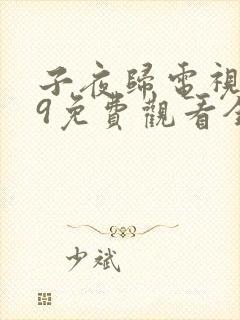 子夜歸電視
9免費觀看全
少斌